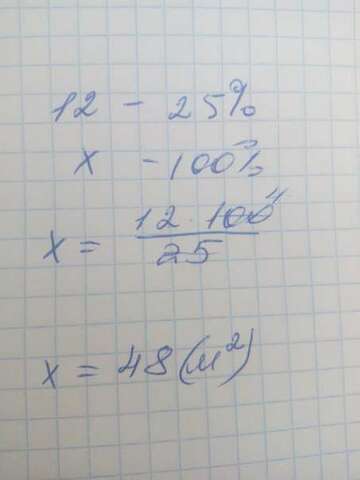 12 - 25%
x - 100%
x = 12 · 100 4 / 25
x = 48 (м²)